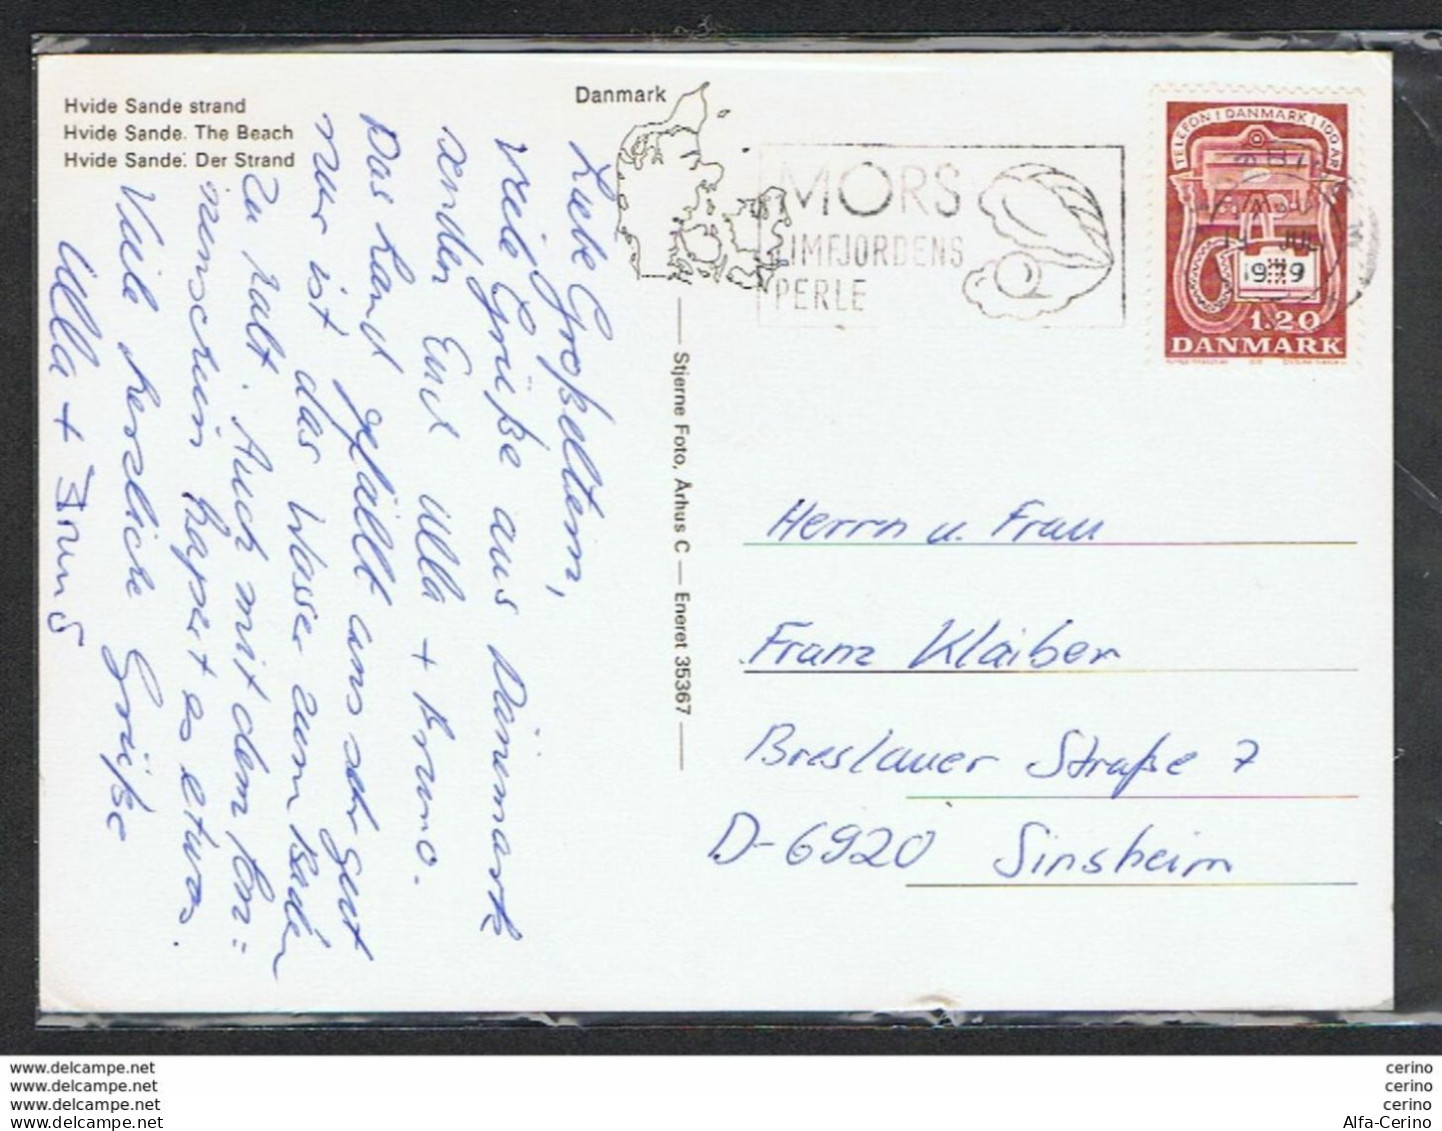 Hvide Sande strand
Hvide Sande. The Beach
Hvide Sande. Der Strand
Danmark
Liebe Großeltern,
viele Grüße aus Dänemark
senden Euch Ulla + Bruno.
Das Land gefällt uns sehr gut
nur ist das Wasser zum Baden
zu kalt. Auch mit dem Son=
nenschein hapert es etwas.
Viele herzliche Grüße
Ulla + Bruno
Stjerne Foto, Århus C — Eneret 35367
MORS
LIMFJORDENS
PERLE
TELEFON I DANMARK I 100 ÅR
1979
1.20
DANMARK
Herrn u. Frau
Franz Klaiber
Breslauer Straße 7
D-6920 Sinsheim
www.delcampe.net
www.delcampe.net
www.delcampe.net
www.delcampe.net
cerino
cerino
cerino
Alfa-Cerino